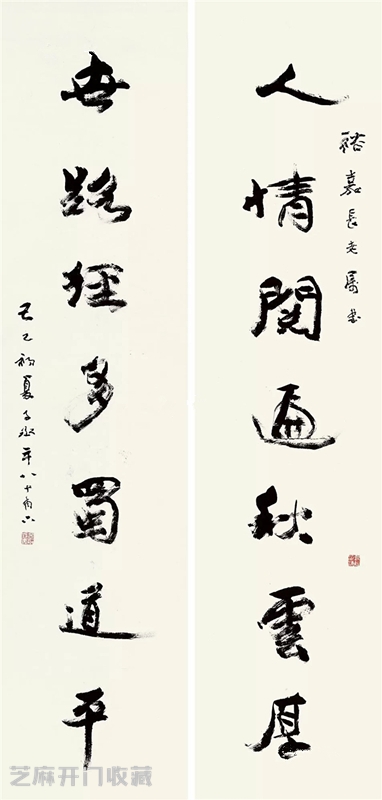 人情閱遍秋雲厚
裕嘉長老屬書
世路經多蜀道平
己巳初夏子丞年八十有六
芝麻开门收藏